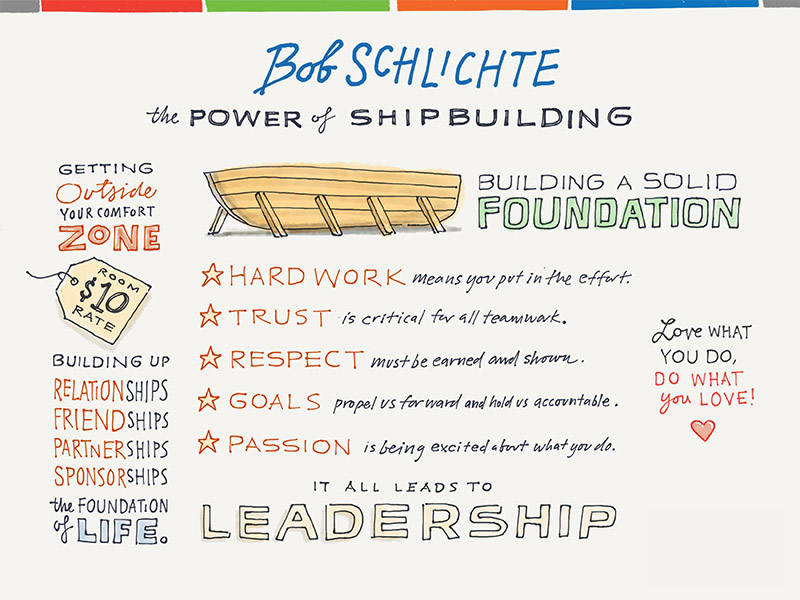 Bob SCHLICHTE
the POWER of SHIPBUILDING
GETTING
Outside
YOUR COMFORT
ZONE
ROOM
$10
RATE
BUILDING UP
RELATIONSHIPS
FRIENDSHIPS
PARTNERSHIPS
SPONSORSHIPS
the FOUNDATION
of LIFE.
BUILDING A SOLID
FOUNDATION
HARD WORK means you put in the effort.
TRUST is critical for all teamwork.
RESPECT must be earned and shown.
GOALS propel us forward and hold us accountable.
PASSION is being excited about what you do.
IT ALL LEADS TO
LEADERSHIP
Love WHAT
YOU DO,
DO WHAT
you LOVE!